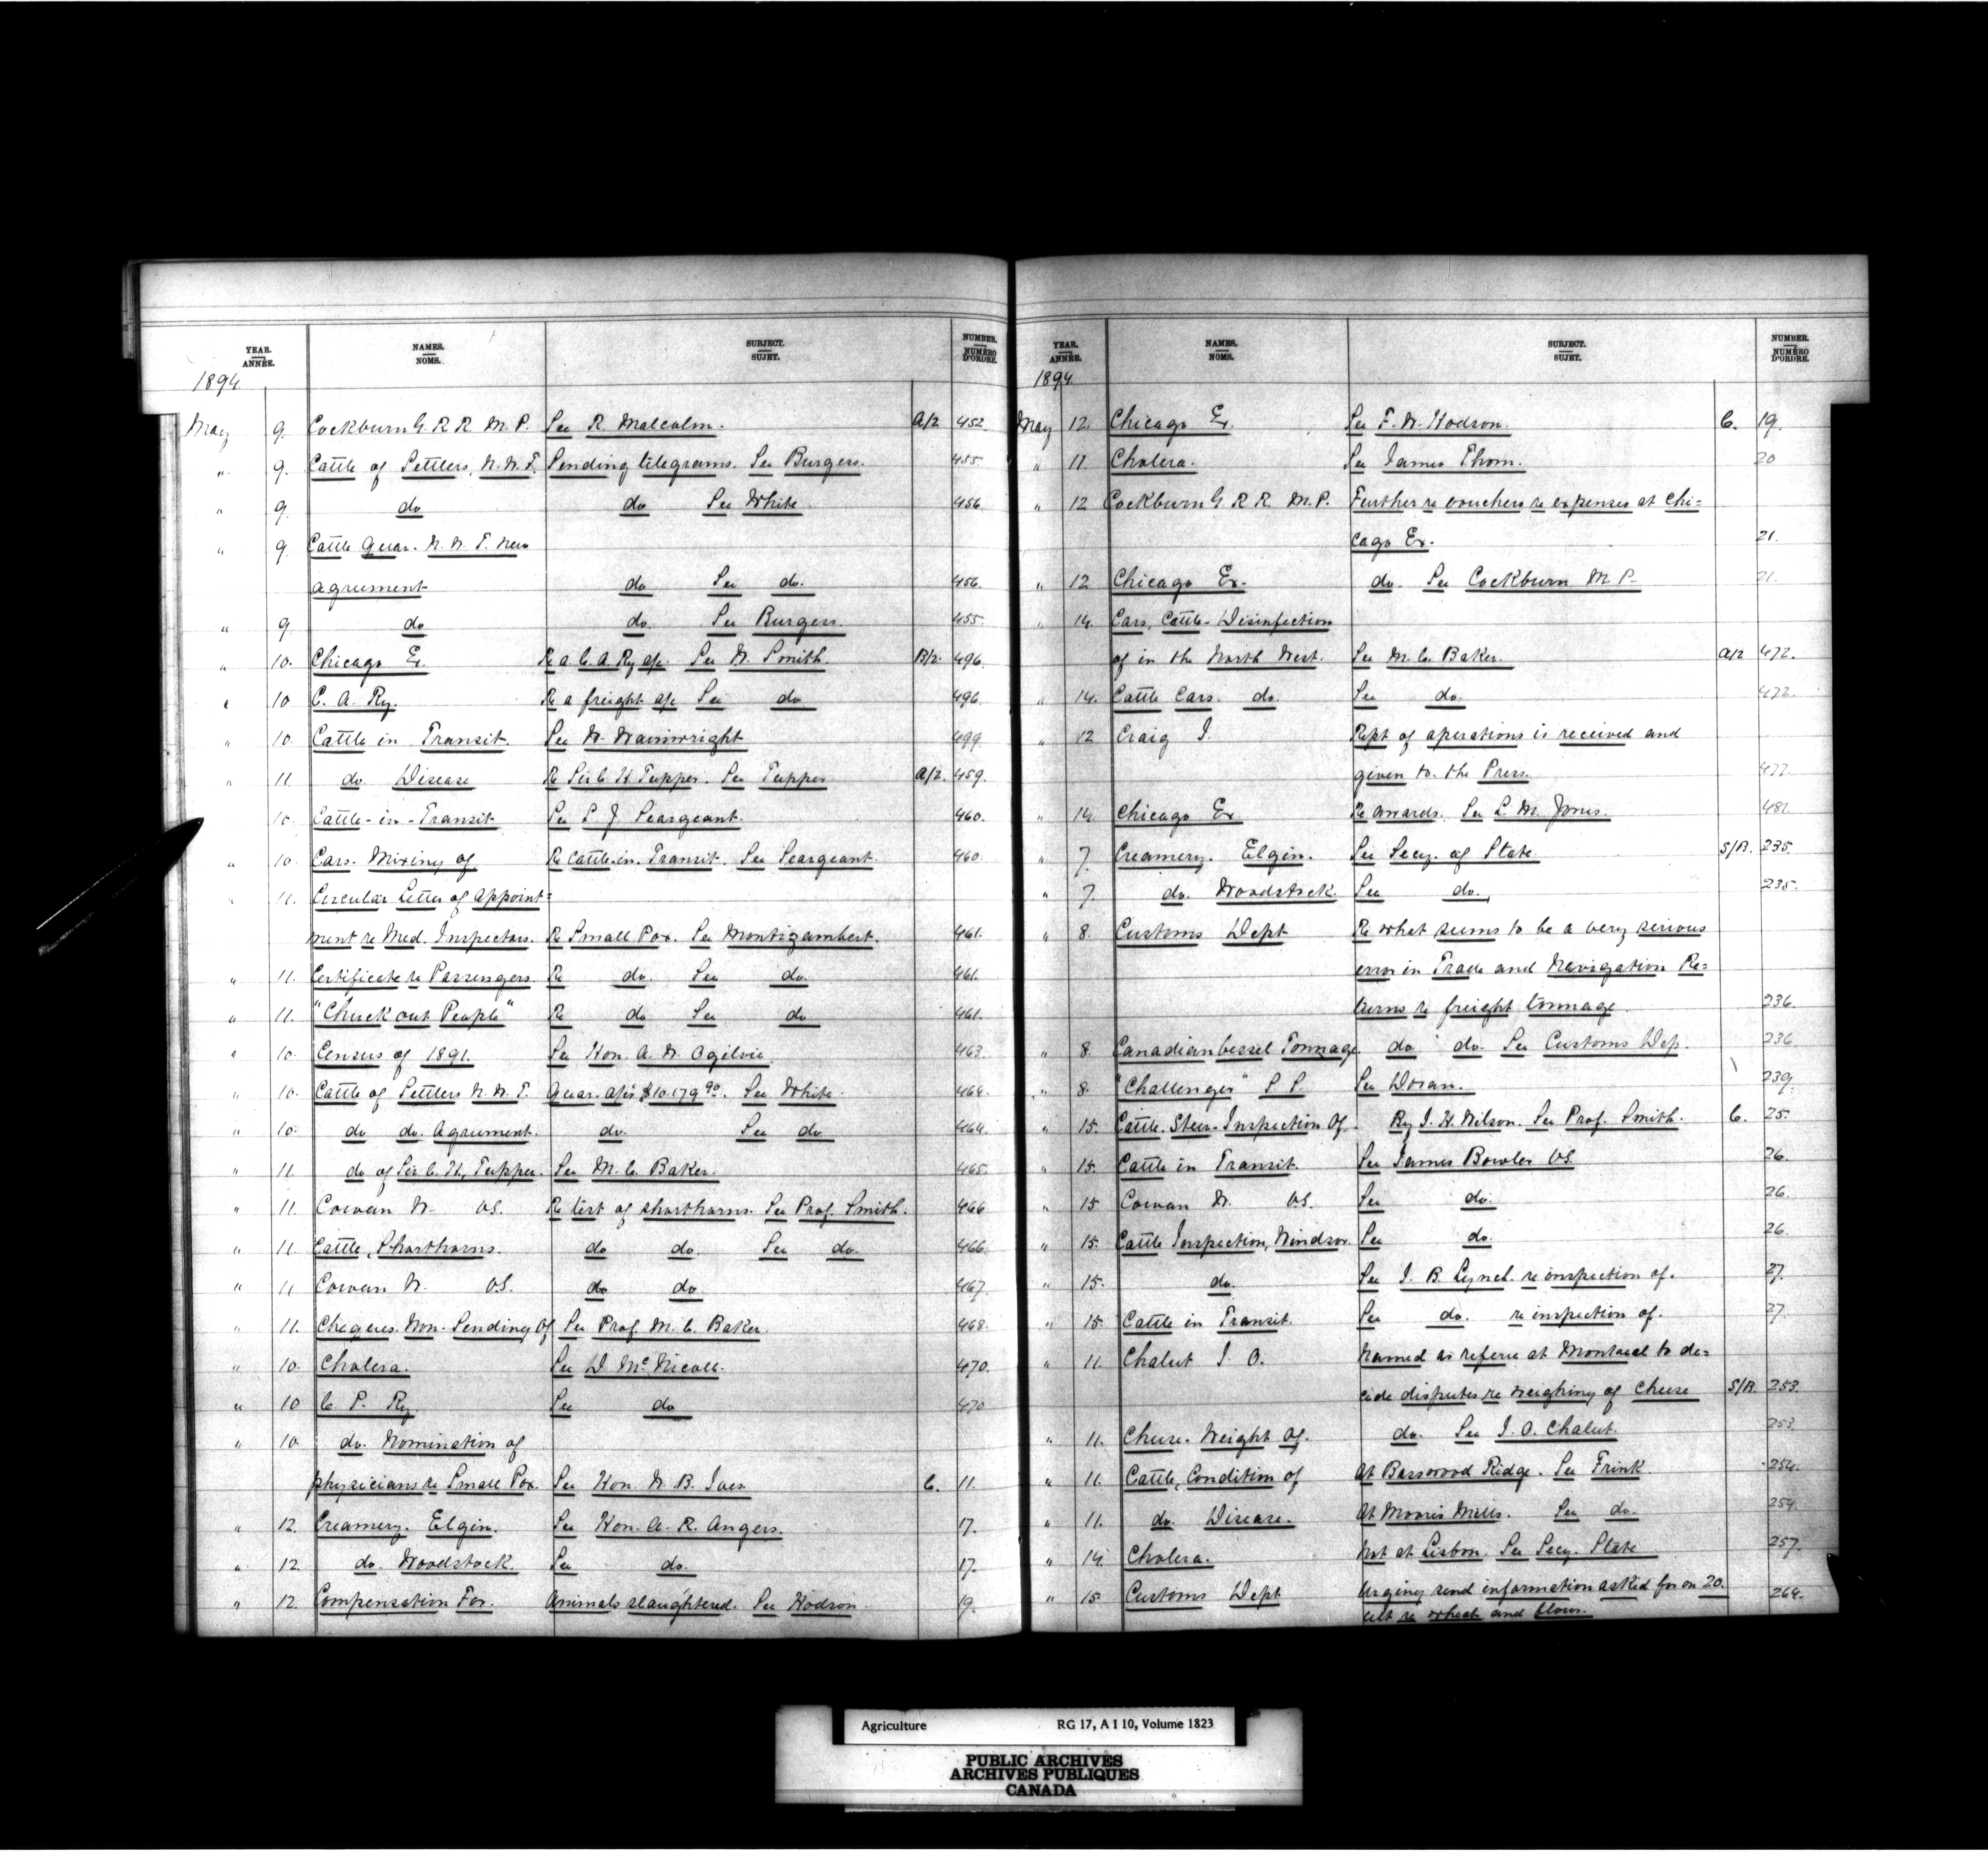 YEAR. ANNÉE. NAMES. NOMS. SUBJECT. SUJET. NUMBER. NUMÉRO D'ORDRE.
1894
May 9. Cockburn G. R. R. M. P. See R. Malcolm. A/2 452
" 9. Cattle of Settlers, N. W. T. Sending telegrams. See Burgess. 455
" 9. do do See White 456
" 9. Cattle Quar. N. W. T. New
agreement do See do. 456.
" 9. do do. See Burgess. 455
" 10. Chicago Ex. Re a C. A. Ry a/c See W. Smith. B/2. 496.
" 10 C. A. Ry. Re a freight a/c See do 496.
" 10. Cattle in Transit. See W. Wainwright 499.
" 11. do. Disease Re Sir C. H. Tupper. See Tupper A/2. 459.
10. Cattle-in-Transit See L J Seargeant. 460.
" 10. Cars. Mixing of Re Cattle-in-Transit. See Seargeant. 460.
" 11. Circular Letter of Appoint=
ment re Med. Inspectors. Re Small Pox. See Montizambert. 461.
" 11. Certificate re Passengers. Re do See do. 461.
" 11. "Chuck out People" Re do See do 461.
" 10. Census of 1891. See Hon. A. W. Ogilvie. 463.
" 10. Cattle of Settlers N. W. T. Quar. a/cs $10.179 90. See White. 464.
" 10. do do. Agreement. do. See do 464.
" 11. do of Sir C. H. Tupper. See M. C. Baker. 465.
" 11. Cowan W. V.S. Re test of shorthorns. See Prof. Smith. 466
" 11. Cattle, Shorthorns. do do. See do. 466.
" 11 Cowan W. V.S. do do. 467.
" 11. Cheques. Non-Sending of See Prof. M. C. Baker. 468.
" 10. Cholera. See D. McNicoll. 470.
" 10 C. P. Ry See do 470
" 10. do. Nomination of
physicians re Small Pox. See Hon. W. B. Ives C. 11.
" 12. Creamery. Elgin. See Hon. A. R. Angers. 17.
" 12. do. Woodstock. See do. 17.
" 12. Compensation For. Animals slaughtered. See Hodson. 19.
YEAR. ANNÉE. NAMES. NOMS. SUBJECT. SUJET. NUMBER. NUMÉRO D'ORDRE.
1894
May 12. Chicago Ex. See F. W. Hodson. C. 19.
" 11. Cholera. See James Thom. 20
" 12 Cockburn G R R. M. P. Further re vouchers re expenses at Chi=
cago Ex. 21.
" 12 Chicago Ex. do. See Cockburn M. P. 21.
" 14. Cars, Cattle-Disinfection
of in the North West. See M. C. Baker. A/2 472.
" 14. Cattle Cars. do See do. 472.
" 12 Craig J. Rept of operations is received and
given to the Press. 477.
" 14. Chicago Ex Re awards. See L. M. Jones. 481.
" 7. Creamery. Elgin. See Secy. of State S/B. 235.
" 7. do. Woodstock. See do. 235.
" 8. Customs Dept Re what seems to be a very serious
error in Trade and Navigation Re=
turns re freight tonnage. 236.
" 8. Canadian Vessel Tonnage. do do. See Customs Dep. 236.
" 8. "Challenger" S. S. See Doran. 239.
" 15. Cattle. Steer-Inspection Of. By J. H. Wilson. See Prof. Smith. C. 25.
" 15. Cattle in Transit. See James Bowler VS. 26.
" 15 Cowan W. V.S. See do. 26.
" 15. Cattle Inspection, Windsor. See do. 26.
" 15. do. See J. B. Lynch. re inspection of. 27.
" 15. Cattle in Transit. See do. re inspection of. 27.
" 11. Chalut J. O. Named as referee at Montreal to de=
cide disputes re weighing of cheese S/B. 253.
" 11. Cheese. Weight Of. do. See J. O. Chalut. 253.
" 11. Cattle, Condition of At Basswood Ridge. See Frink 254.
" 11. do. Disease. At Moores Mills. See do. 254.
" 14. Cholera. Not at Lisbon. See Secy. State 257.
" 15. Customs Dept Urging send information asked for on 20.
ult re wheat and flour. 264.
Agriculture RG 17, A I 10, Volume 1823
PUBLIC ARCHIVES
ARCHIVES PUBLIQUES
CANADA